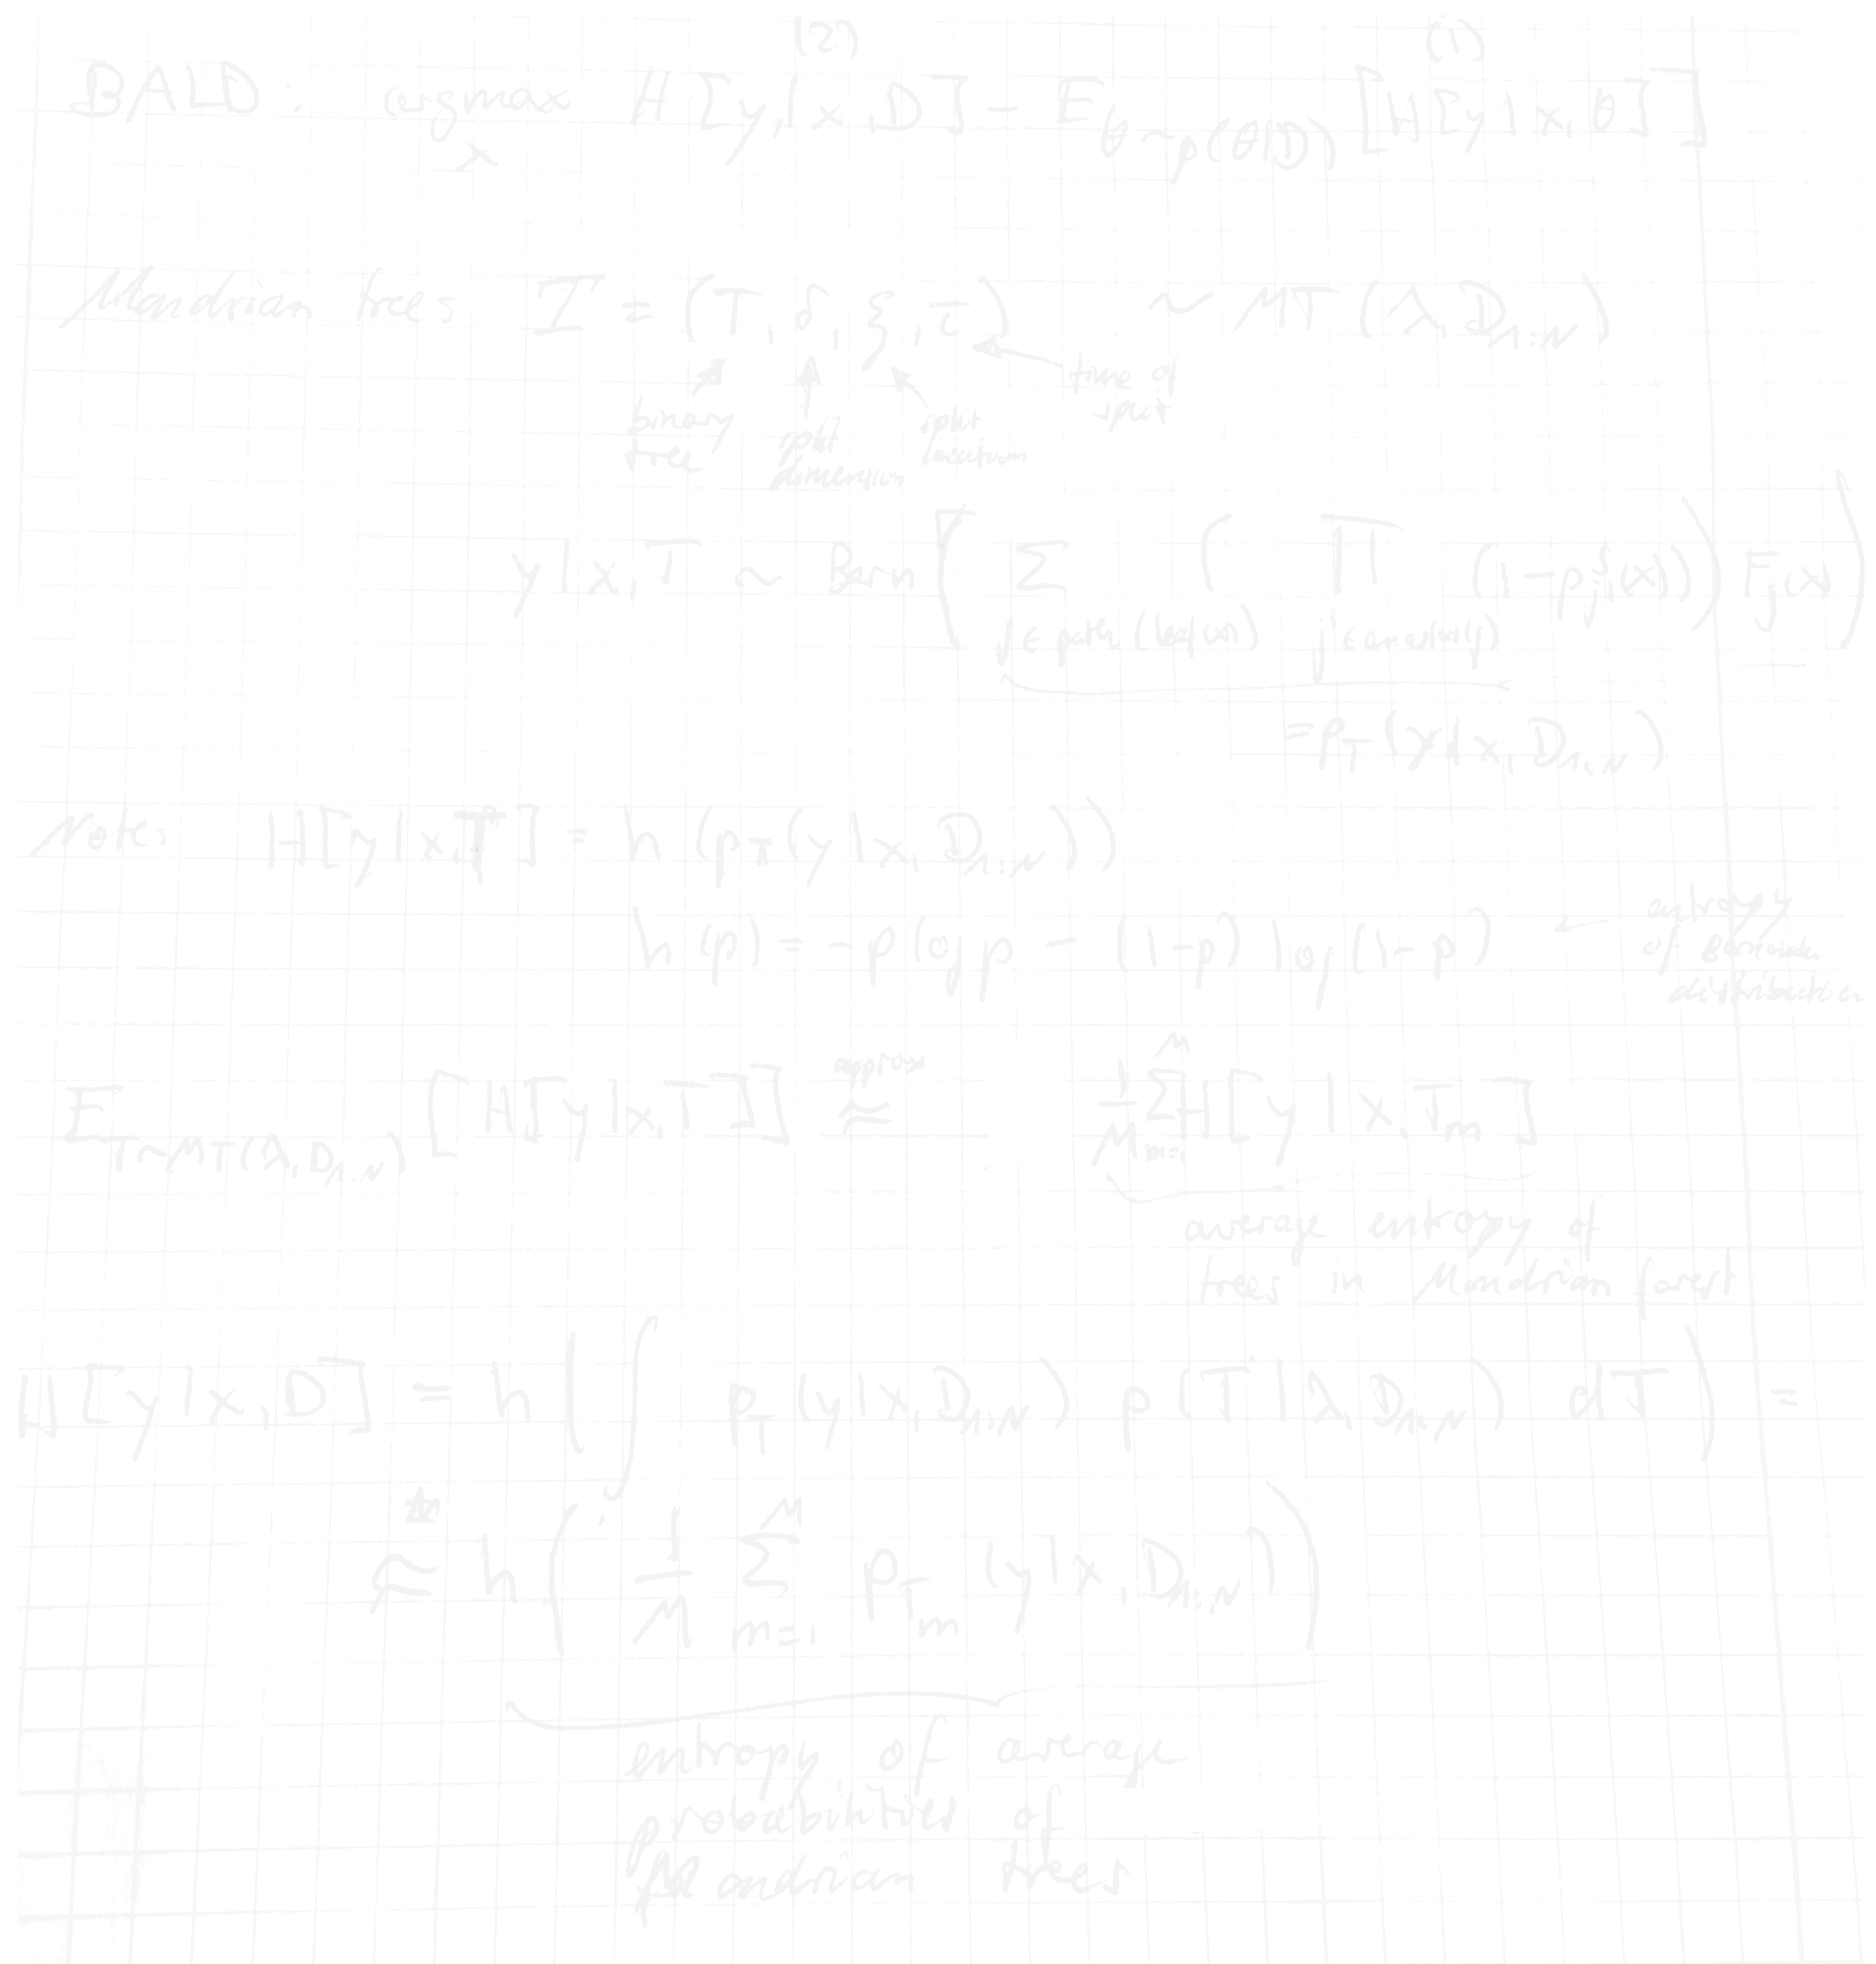 (2) (1)
BALD: argmax_x H[y|x,D] - E_{θ~p(θ|D)} [H[y|x,θ]]
Mondrian trees T = (T, δ, ξ, τ) ~ MT(λ, D_{1:N})
binary tree
split dimension
split location
time of split
y|x,T ~ Bern( Σ_{j ∈ path(leaf(x))} ( Π_{j' ∈ ancestors(j)} (1-p_{j'}^s(x)) ) F_j(x) )
= p_T(y|x, D_{1:N})
Note: H[y|x,T] = h(p_T(y|x, D_{1:N}))
h(p) = -p log p - (1-p) log(1-p) ← entropy of Bernoulli distribution
E_{T~MT(λ, D_{1:N})} [H[y|x,T]] ≈ 1/M Σ_{m=1}^M H[y|x,T_m]
approx
average entropy of
trees in Mondrian forest
H[y|x,D] = h( ∫ p_T(y|x, D_{1:N}) p(T|λ, D_{1:N}) dT ) =
≈ h( 1/M Σ_{m=1}^M p_{T_m}(y|x, D_{1:N}) )
entropy of average
probabilities of
Mondrian trees